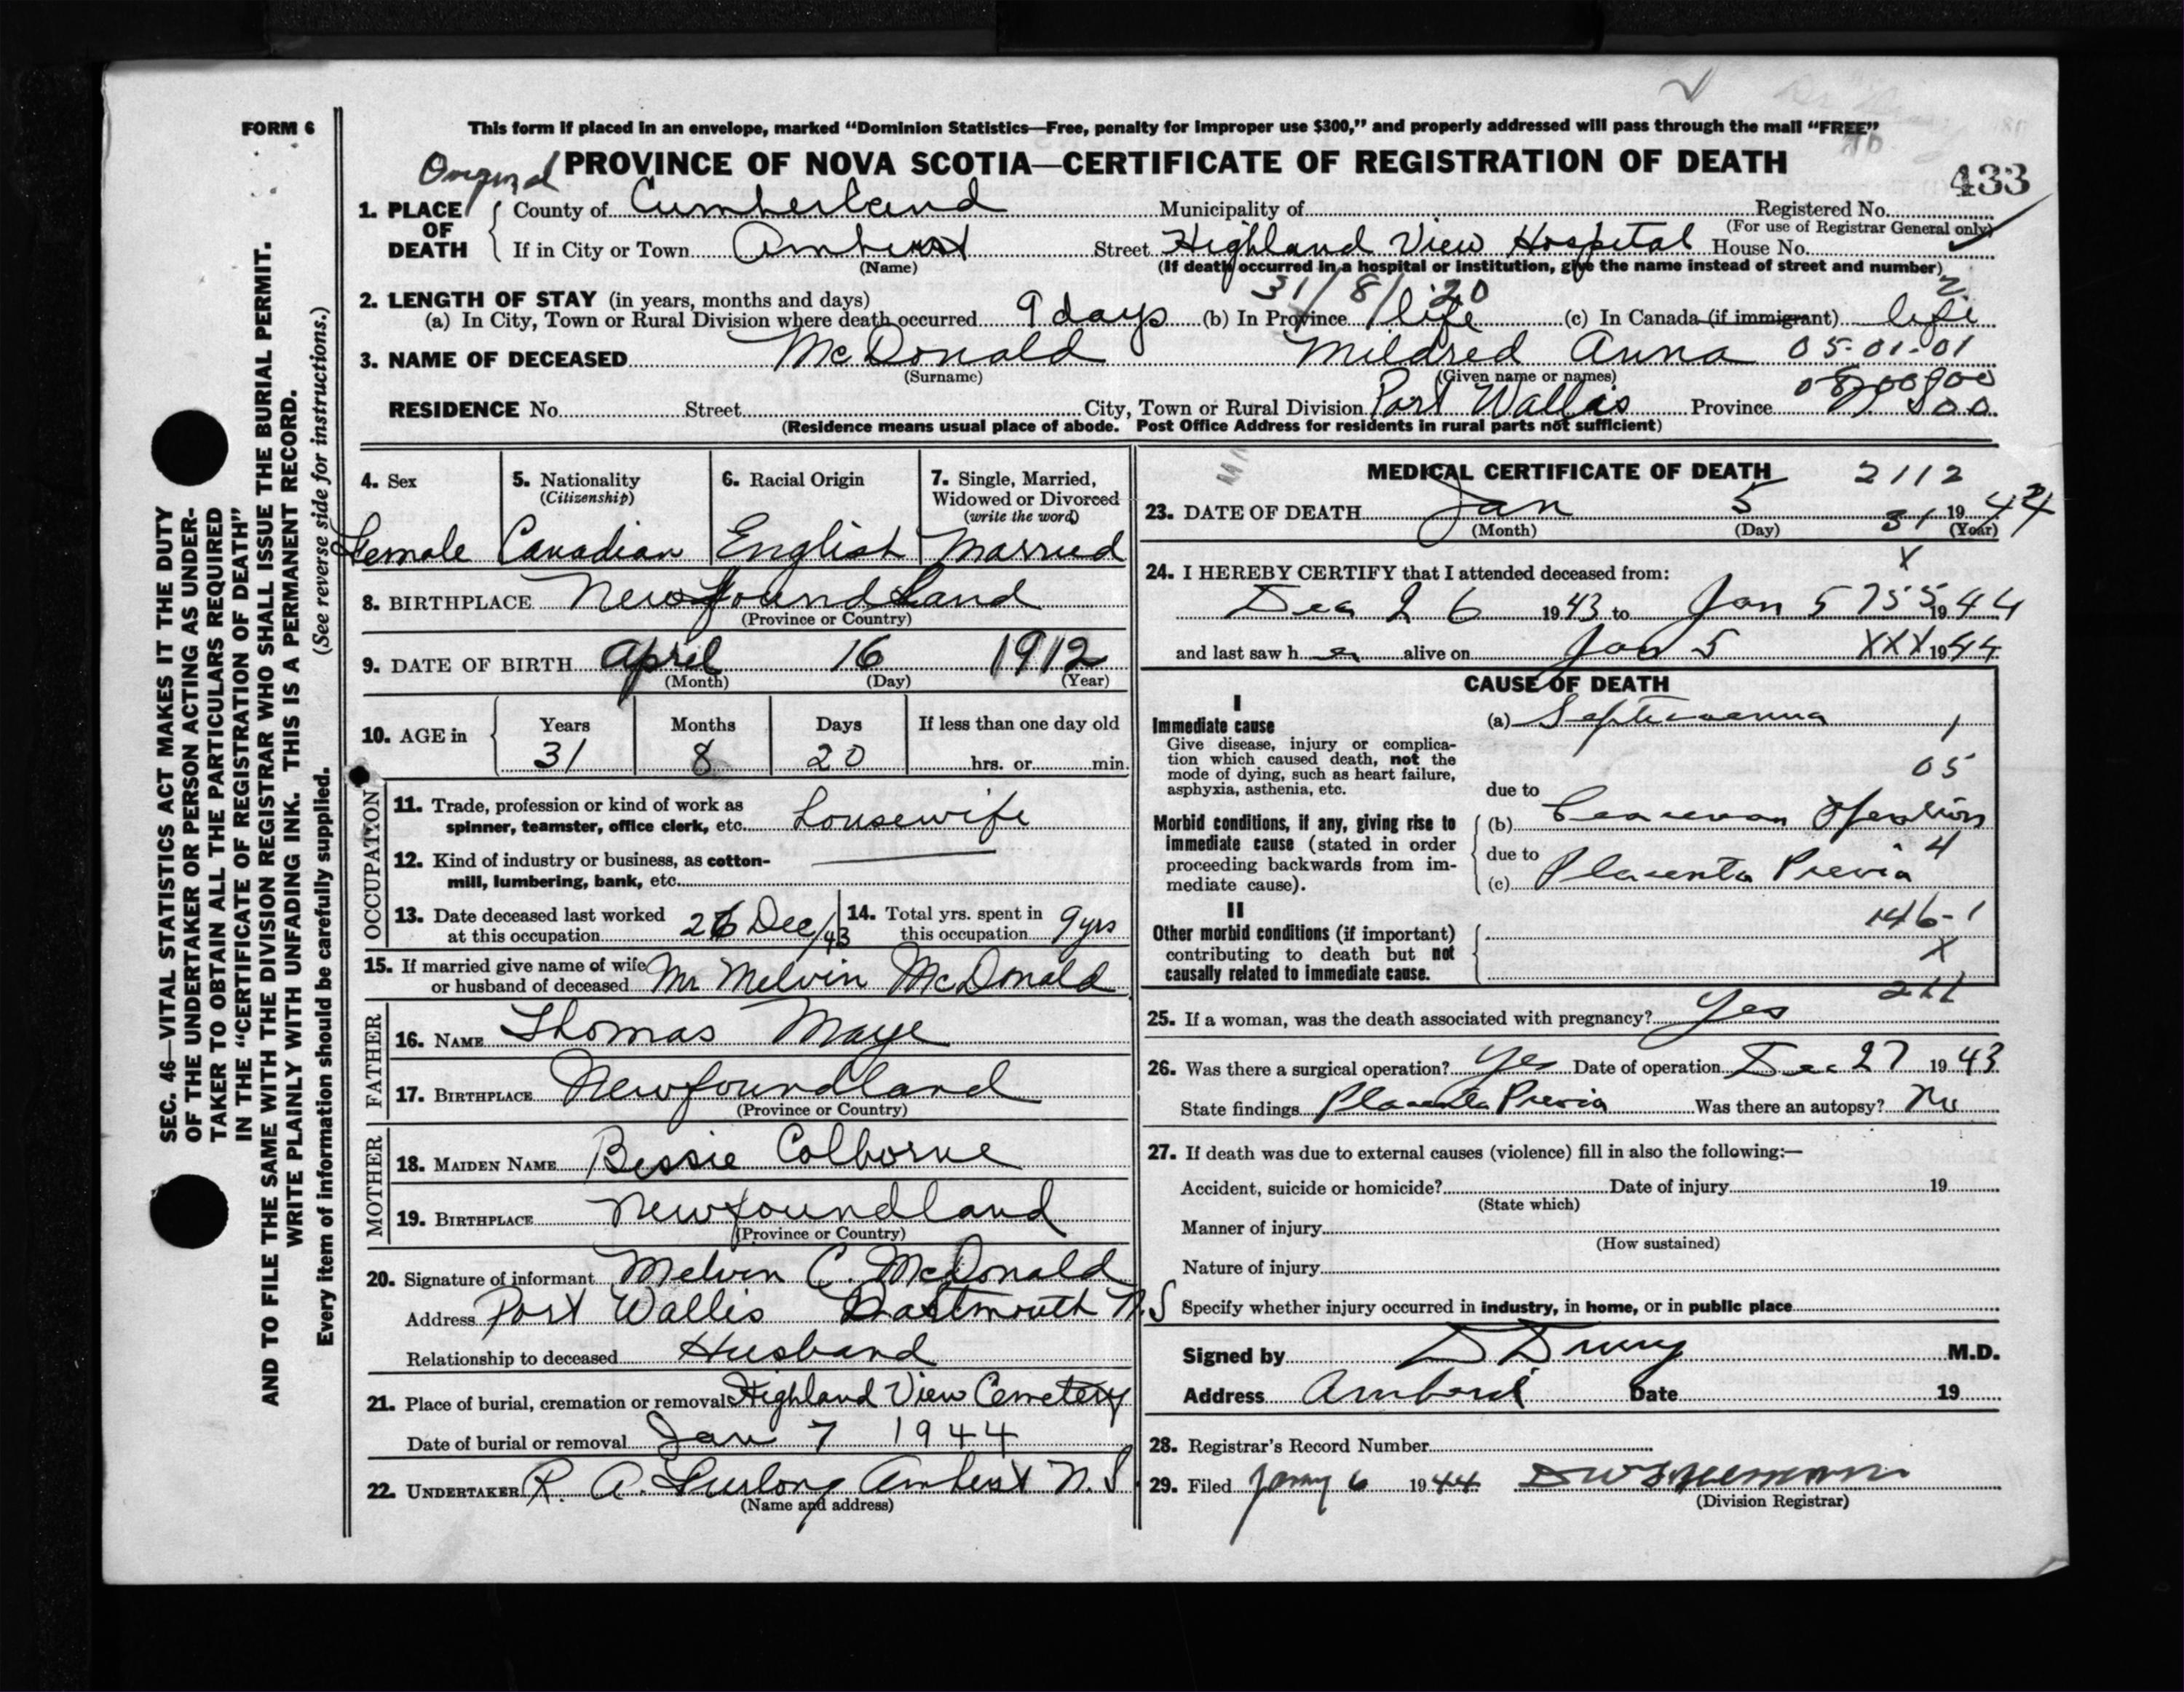 FORM 6
This form if placed in an envelope, marked “Dominion Statistics—Free, penalty for improper use $300,” and properly addressed will pass through the mail “FREE”
Original PROVINCE OF NOVA SCOTIA—CERTIFICATE OF REGISTRATION OF DEATH
433
1. PLACE OF DEATH County of Cumberland Municipality of Registered No.
(For use of Registrar General only)
If in City or Town Amherst Street Highland View Hospital House No.
(Name) (If death occurred in a hospital or institution, give the name instead of street and number)
2. LENGTH OF STAY (in years, months and days) 31/8/20 2
(a) In City, Town or Rural Division where death occurred 9 days (b) In Province life (c) In Canada (if immigrant) life
3. NAME OF DECEASED McDonald Mildred Anna 05-01-01
(Surname) (Given name or names)
RESIDENCE No. Street City, Town or Rural Division Port Wallis Province
(Residence means usual place of abode. Post Office Address for residents in rural parts not sufficient)
SEC. 46—VITAL STATISTICS ACT MAKES IT THE DUTY
OF THE UNDERTAKER OR PERSON ACTING AS UNDER-
TAKER TO OBTAIN ALL THE PARTICULARS REQUIRED
IN THE “CERTIFICATE OF REGISTRATION OF DEATH”
AND TO FILE THE SAME WITH THE DIVISION REGISTRAR WHO SHALL ISSUE THE BURIAL PERMIT.
WRITE PLAINLY WITH UNFADING INK. THIS IS A PERMANENT RECORD.
Every item of information should be carefully supplied. (See reverse side for instructions.)
4. Sex 5. Nationality 6. Racial Origin 7. Single, Married,
(Citizenship) Widowed or Divorced
(write the word)
Female Canadian English Married
8. BIRTHPLACE Newfoundland
(Province or Country)
9. DATE OF BIRTH April 16 1912
(Month) (Day) (Year)
10. AGE in Years Months Days If less than one day old
31 8 20 hrs. or min.
OCCUPATION
11. Trade, profession or kind of work as
spinner, teamster, office clerk, etc. housewife
12. Kind of industry or business, as cotton-
mill, lumbering, bank, etc.
13. Date deceased last worked
at this occupation 26 Dec/43
14. Total yrs. spent in
this occupation 9 yrs
15. If married give name of wife
or husband of deceased Mr Melvin McDonald
FATHER
16. NAME Thomas Maye
17. BIRTHPLACE Newfoundland
(Province or Country)
MOTHER
18. MAIDEN NAME Bessie Colborne
19. BIRTHPLACE Newfoundland
(Province or Country)
20. Signature of informant Melvin C. McDonald
Address Port Wallis Dartmouth N.S
Relationship to deceased Husband
21. Place of burial, cremation or removal Highland View Cemetery
Date of burial or removal Jan 7 1944
22. UNDERTAKER R. A. Furlong Amherst N.S.
(Name and address)
MEDICAL CERTIFICATE OF DEATH 2112
23. DATE OF DEATH Jan 5 31 1944
(Month) (Day) (Year)
24. I HEREBY CERTIFY that I attended deceased from: X
Dec 26 1943 to Jan 5 755 1944
and last saw h er alive on Jan 5 XXX 1944
CAUSE OF DEATH
I
Immediate cause (a) Septicaemia 1
Give disease, injury or complica-
tion which caused death, not the
mode of dying, such as heart failure,
asphyxia, asthenia, etc.
05
due to
Morbid conditions, if any, giving rise to
immediate cause (stated in order
proceeding backwards from im-
mediate cause).
(b) Ceaserean Operation
due to 4
(c) Placenta Previa
II
Other morbid conditions (if important)
contributing to death but not
causally related to immediate cause.
146-1
X
25. If a woman, was the death associated with pregnancy? Yes
26. Was there a surgical operation? Yes Date of operation Dec 27 1943
State findings Placenta Previa Was there an autopsy? No
27. If death was due to external causes (violence) fill in also the following:—
Accident, suicide or homicide? Date of injury 19
(State which)
Manner of injury
(How sustained)
Nature of injury
Specify whether injury occurred in industry, in home, or in public place
Signed by D Drury M.D.
Address Amherst Date 19
28. Registrar’s Record Number
29. Filed Jany 6 1944
(Division Registrar)